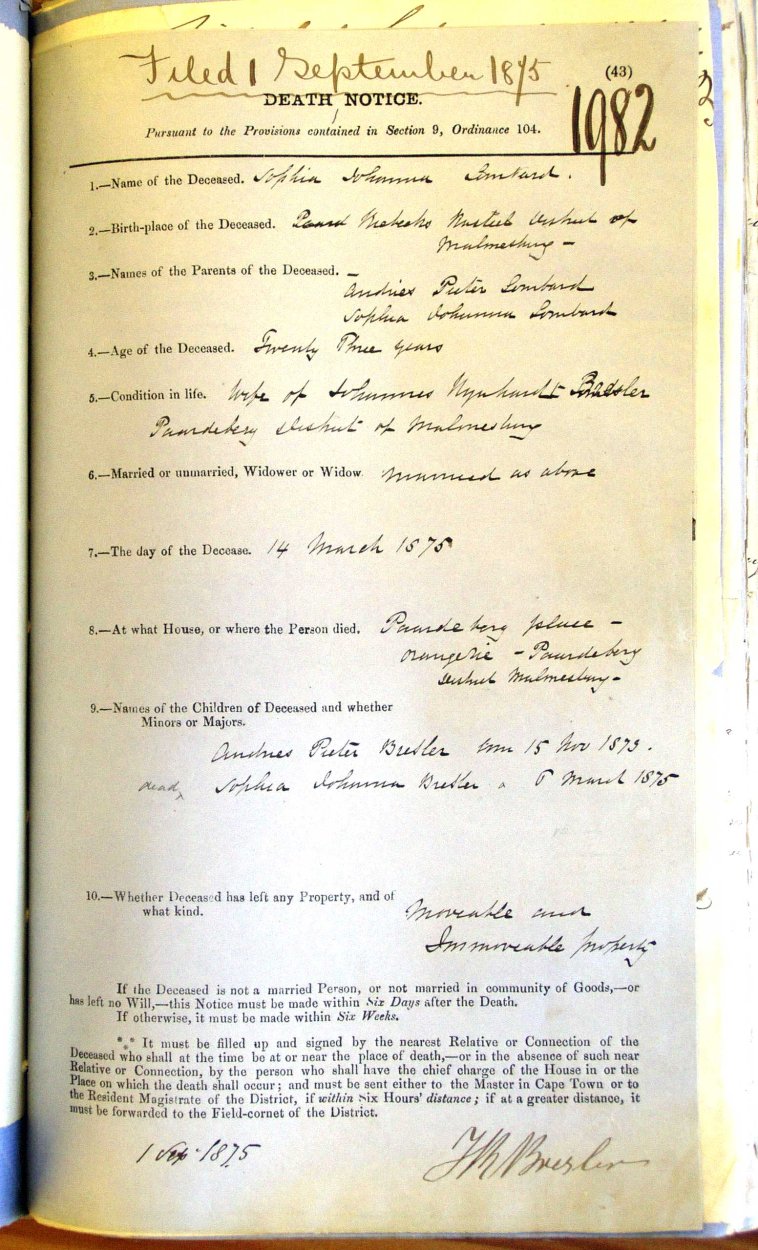 Filed 1 September 1875
(43)
DEATH NOTICE.
1982
Pursuant to the Provisions contained in Section 9, Ordinance 104.
1.—Name of the Deceased. Sophia Johanna Lombard.
2.—Birth-place of the Deceased. Riebeeks Kasteel District of
Malmesbury –
3.—Names of the Parents of the Deceased. –
Andries Pieter Lombard
Sophia Johanna Lombard
4.—Age of the Deceased. Twenty Three years
5.—Condition in life. Wife of Johannes Wynhardt Bresler
Paardeberg District of Malmesbury
6.—Married or unmarried, Widower or Widow. Married as above
7.—The day of the Decease. 14 March 1875
8.—At what House, or where the Person died. Paardeberg place –
Orangerie – Paardeberg
District Malmesbury –
9.—Names of the Children of Deceased and whether
Minors or Majors.
Andries Pieter Bresler 15 Nov 1873.
dead Sophia Johanna Bresler " 6 March 1875
10.—Whether Deceased has left any Property, and of
what kind. Moveable and
Immoveable property
If the Deceased is not a married Person, or not married in community of Goods,—or
has left no Will,—this Notice must be made within Six Days after the Death.
If otherwise, it must be made within Six Weeks.
*** It must be filled up and signed by the nearest Relative or Connection of the
Deceased who shall at the time be at or near the place of death,—or in the absence of such near
Relative or Connection, by the person who shall have the chief charge of the House in or the
Place on which the death shall occur; and must be sent either to the Master in Cape Town or to
the Resident Magistrate of the District, if within Six Hours' distance; if at a greater distance, it
must be forwarded to the Field-cornet of the District.
1 Sep. 1875
Bresler